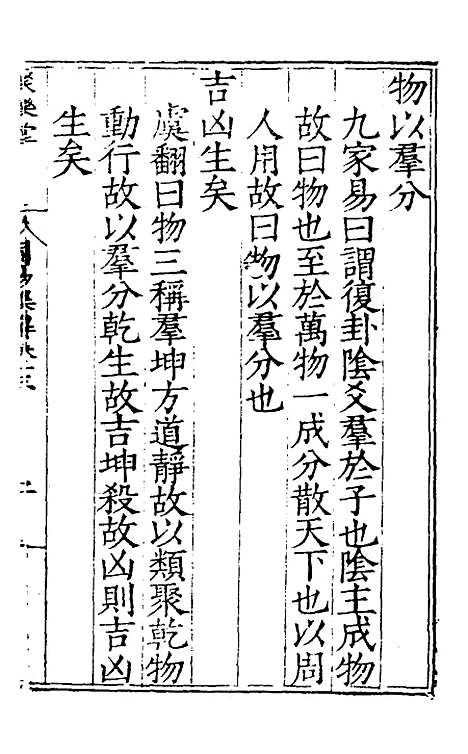 物以羣分
九家易曰謂復卦陰爻羣於子也陰主成物
故曰物也至於萬物一成分散天下也以周
人用故曰物以羣分也
吉凶生矣
虞翻曰物三稱羣坤方道靜故以類聚乾物
動行故以羣分乾生故吉坤殺故凶則吉凶
生矣
聚樂堂
易集解